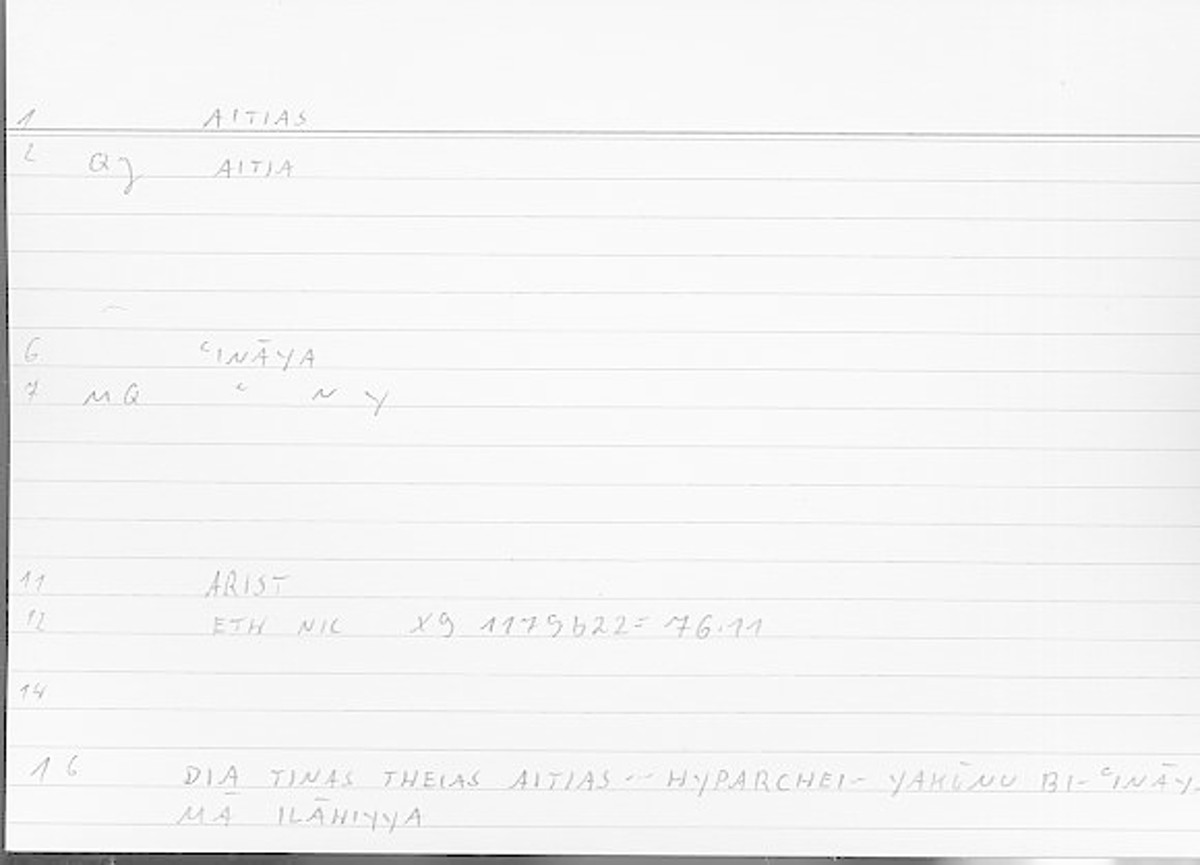 1 AITIAS
2 Qg AITIA
6 ʿINĀYA
7 MQ ʿ N Y
11 ARIST
12 ETH NIC X9 1179b22= 76.11
14
16 DIA TINAS THEIAS AITIAS -- HYPARCHEI- YAKŪNU BI-ʿINĀY
MĀ ILĀHIYYA